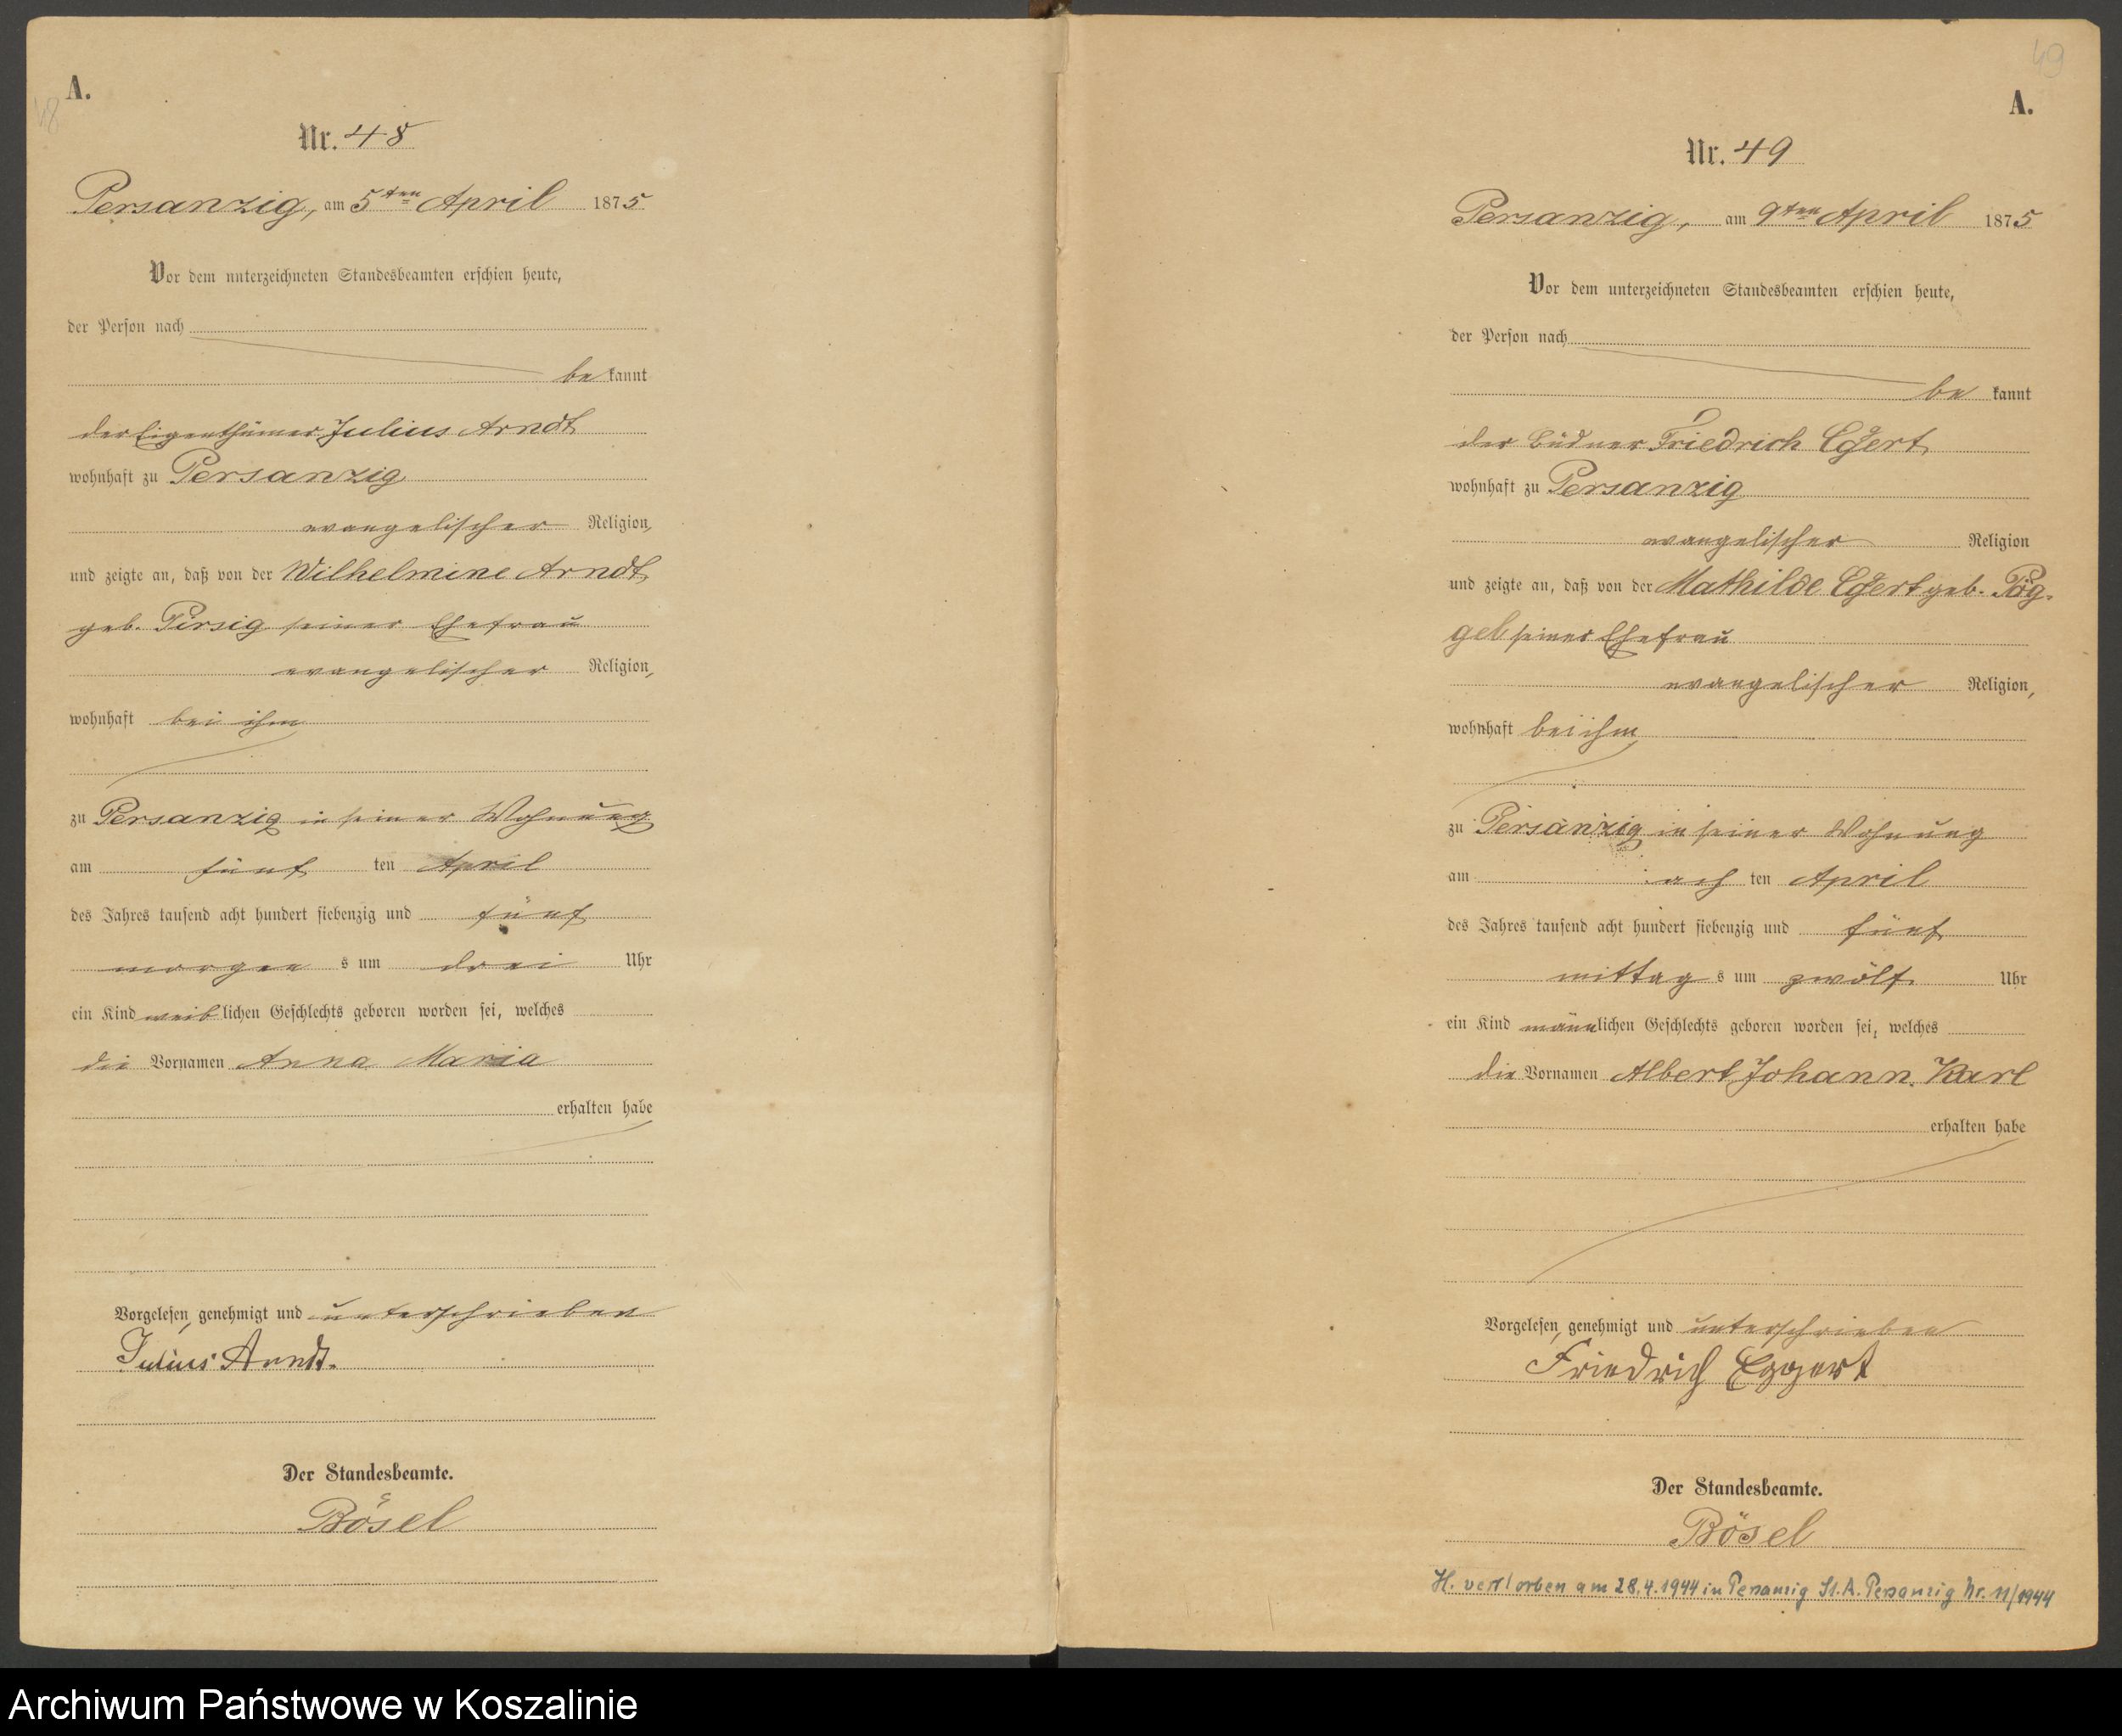 48
A.
Nr. 48
Persanzig, am 5ten April 1875
Vor dem unterzeichneten Standesbeamten erschien heute,
der Person nach
be kannt
der Eigenthümer Julius Arndt
wohnhaft zu Persanzig
evangelischer Religion,
und zeigte an, daß von der Wilhelmine Arndt
geb. Pirsig seiner Ehefrau
evangelischer Religion,
wohnhaft bei ihm
zu Persanzig in seiner Wohnung
am fünf ten April
des Jahres tausend acht hundert siebenzig und fünf
morgen s um drei Uhr
ein Kind weib lichen Geschlechts geboren worden sei, welches
die Vornamen Anna Maria
erhalten habe
Vorgelesen, genehmigt und unterschrieben
Julius Arndt.
Der Standesbeamte.
Bösel
49
A.
Nr. 49
Persanzig, am 9ten April 1875
Vor dem unterzeichneten Standesbeamten erschien heute,
der Person nach
be kannt
der Büdner Friedrich Eggert
wohnhaft zu Persanzig
evangelischer Religion
und zeigte an, daß von der Mathilde Eggert geb.
gel seiner Ehefrau
evangelischer Religion,
wohnhaft bei ihm
zu Persanzig in seiner Wohnung
am ach ten April
des Jahres tausend acht hundert siebenzig und fünf
mittag s um zwölf Uhr
ein Kind männlichen Geschlechts geboren worden sei, welches
die Vornamen Albert Johann Karl
erhalten habe
Vorgelesen, genehmigt und unterschrieben
Friedrich Eggert
Der Standesbeamte.
Bösel
H. verstorben am 28.4.1944 in Persanzig St.A. Persanzig Nr. 11/1944
Archiwum Państwowe w Koszalinie